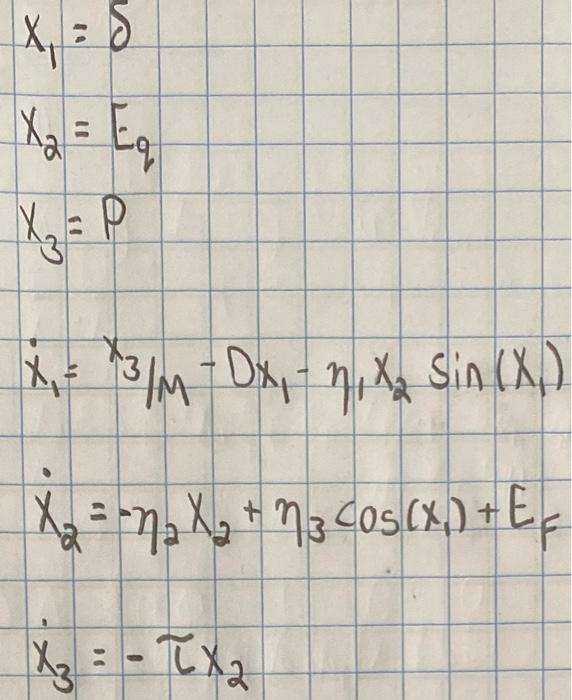 x₁ = δ
x₂ = E_q
x₃ = P
ẋ₁ = x₃/M - Dx₁ - η₁x₂ sin(x₁)
ẋ₂ = -η₂x₂ + η₃cos(x₁) + E_F
ẋ₃ = - τx₂